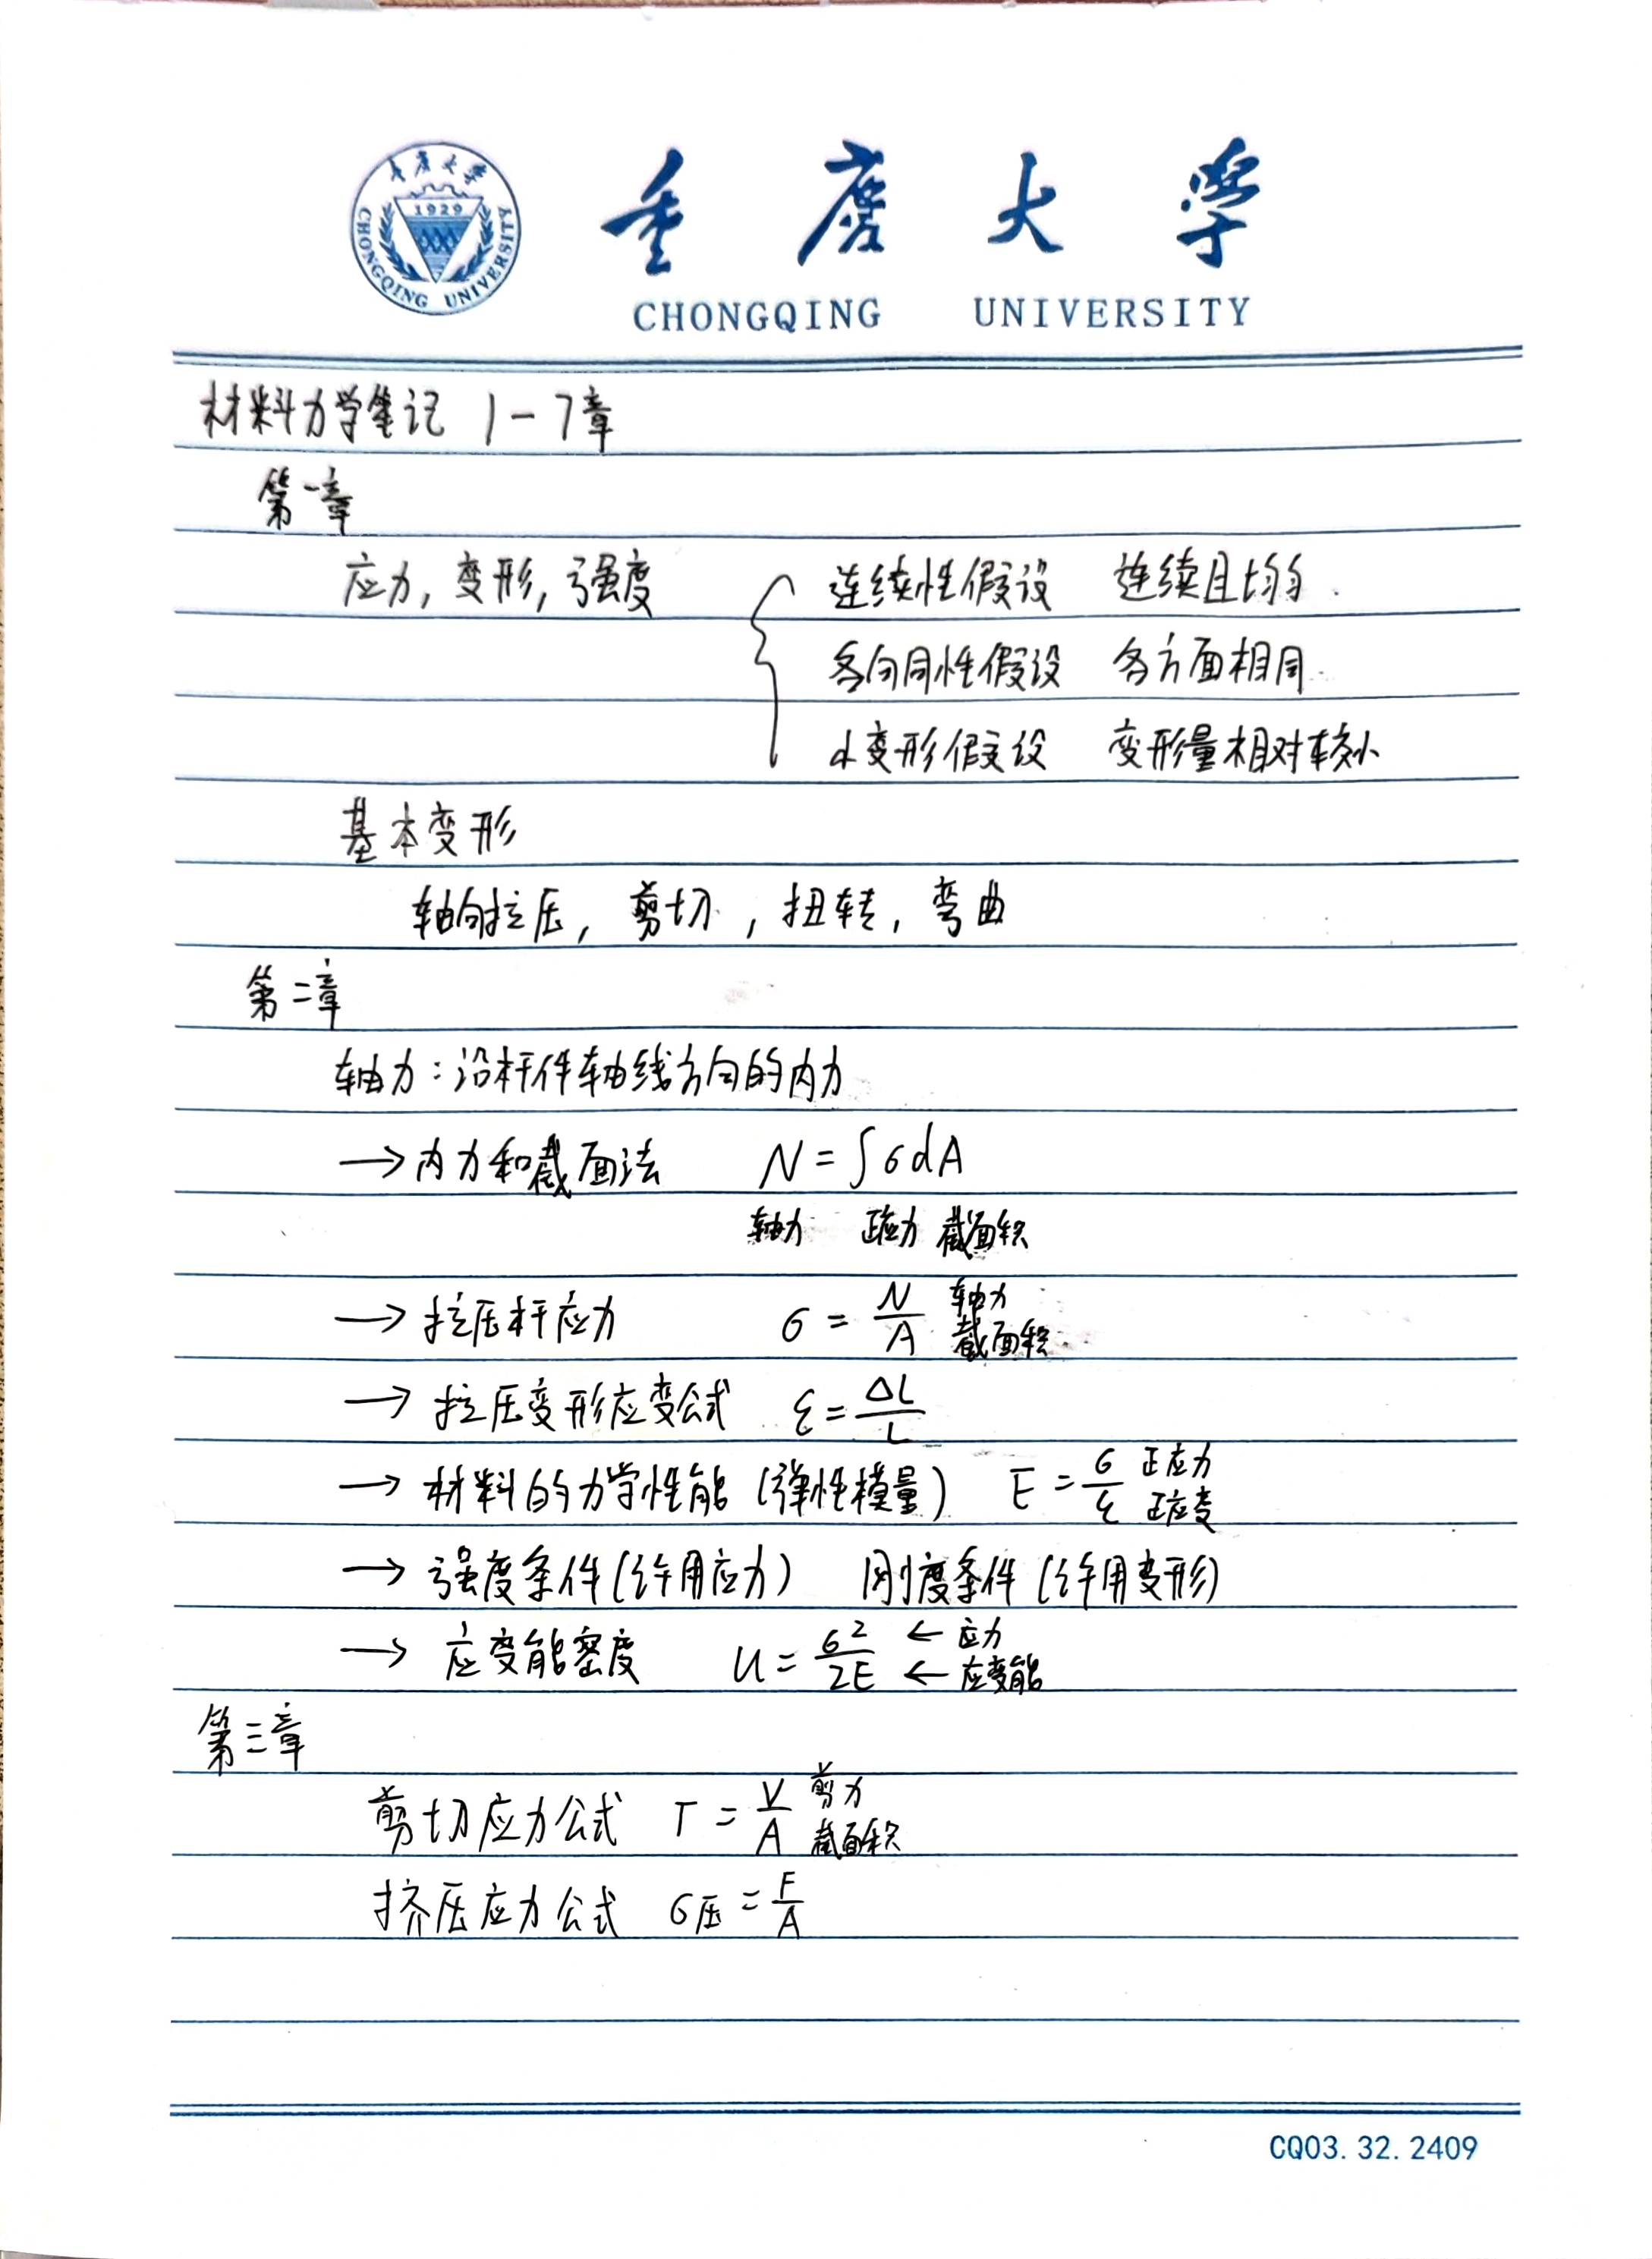 重庆大学
CHONGQING UNIVERSITY
重庆大学
1929
CHONGQING UNIVERSITY
材料力学笔记 1-7章
第一章
应力,变形,强度 { 连续性假设 连续且均匀.
各向同性假设 各方面相同
小变形假设 变形量相对较小
基本变形
轴向拉压, 剪切, 扭转, 弯曲
第二章
轴力:沿杆件轴线方向的内力
→内力和截面法 N=∫σdA
轴力 正应力 截面积
→拉压杆应力 σ=N/A 轴力 截面积
→拉压变形应变公式 ε=ΔL/L
→材料的力学性能(弹性模量) E=σ/ε 正应力 正应变
→强度条件(许用应力) 刚度条件(许用变形)
→应变能密度 u=σ²/2E ←应力 ←应变能
第三章
剪切应力公式 τ=V/A 剪力 截面积
挤压应力公式 σ压=F/A
CQ03.32.2409